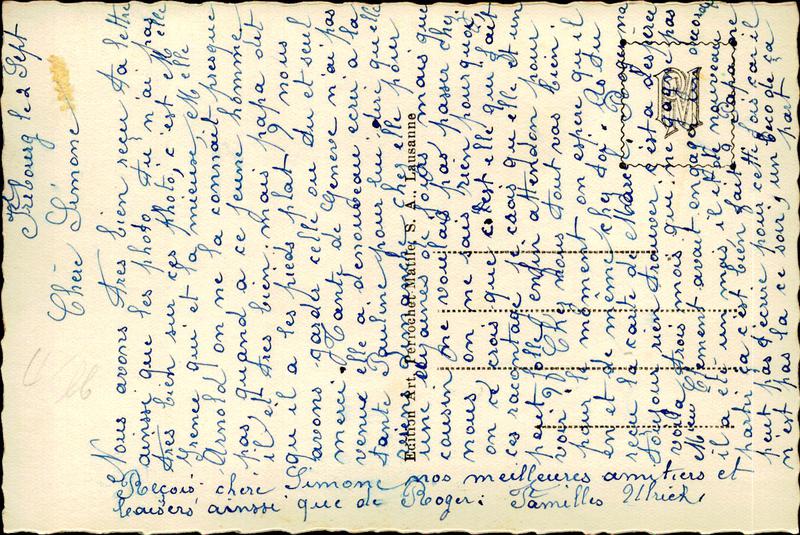 Fribourg le 2 Sept
Chère Simone
Nous avons très bien reçu ta lettre
ainssi que les photo tu n'ai pas
très bien sur ces photo, c'est Melle
Irence qui et la mieuse Melle
Arnold on ne la connait presque
pas quand a ce jeune homme
il et très bien mais papa dit
qu'il a les pieds plat? nous
avons garder celle ou tu et seul
merci. Tante de Genève n'ai pas
venue elle a denouveau écri a la
tante Pauline pour lui dir qu'elle
chez elle pour
une de jours mais que
cousin ne voulais pas passer chez
nous, on ne sais rien pourquoi,
on ce crois que c'est elle qui fait
ces racontage je crois que elle et un
peut folle, enfin attendon pour
voir? Chez nous tout vas bien.
pour le moment on espère qu'il
en et de même chez toi. As tu
reçu la carte de Marcel
toujour rien trouver c'est a désespérer
voila trois mois qui ne gagne pas
Mieu Clément avait engager
il a été un mois il et de nouveau
partir sa c'est bien fait. Papa ne
peut pas t'écrire pour cette fois car il
n'est pas la ce soir, un bico de ça
part
Reçois chère Simone nos meilleures amitiers et
baisers ainssi que de Roger. Familles Ulrich
Edition Art. Perrochet-Matile, S. A., Lausanne